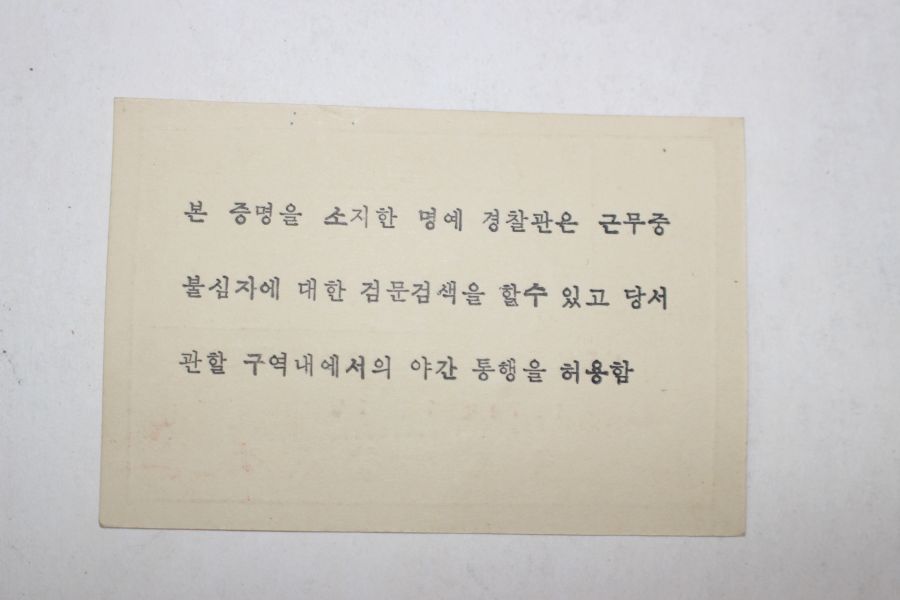 본 증명을 소지한 명예 경찰관은 근무중
불심자에 대한 검문검색을 할수 있고 당서
관할 구역내에서의 야간 통행을 허용함